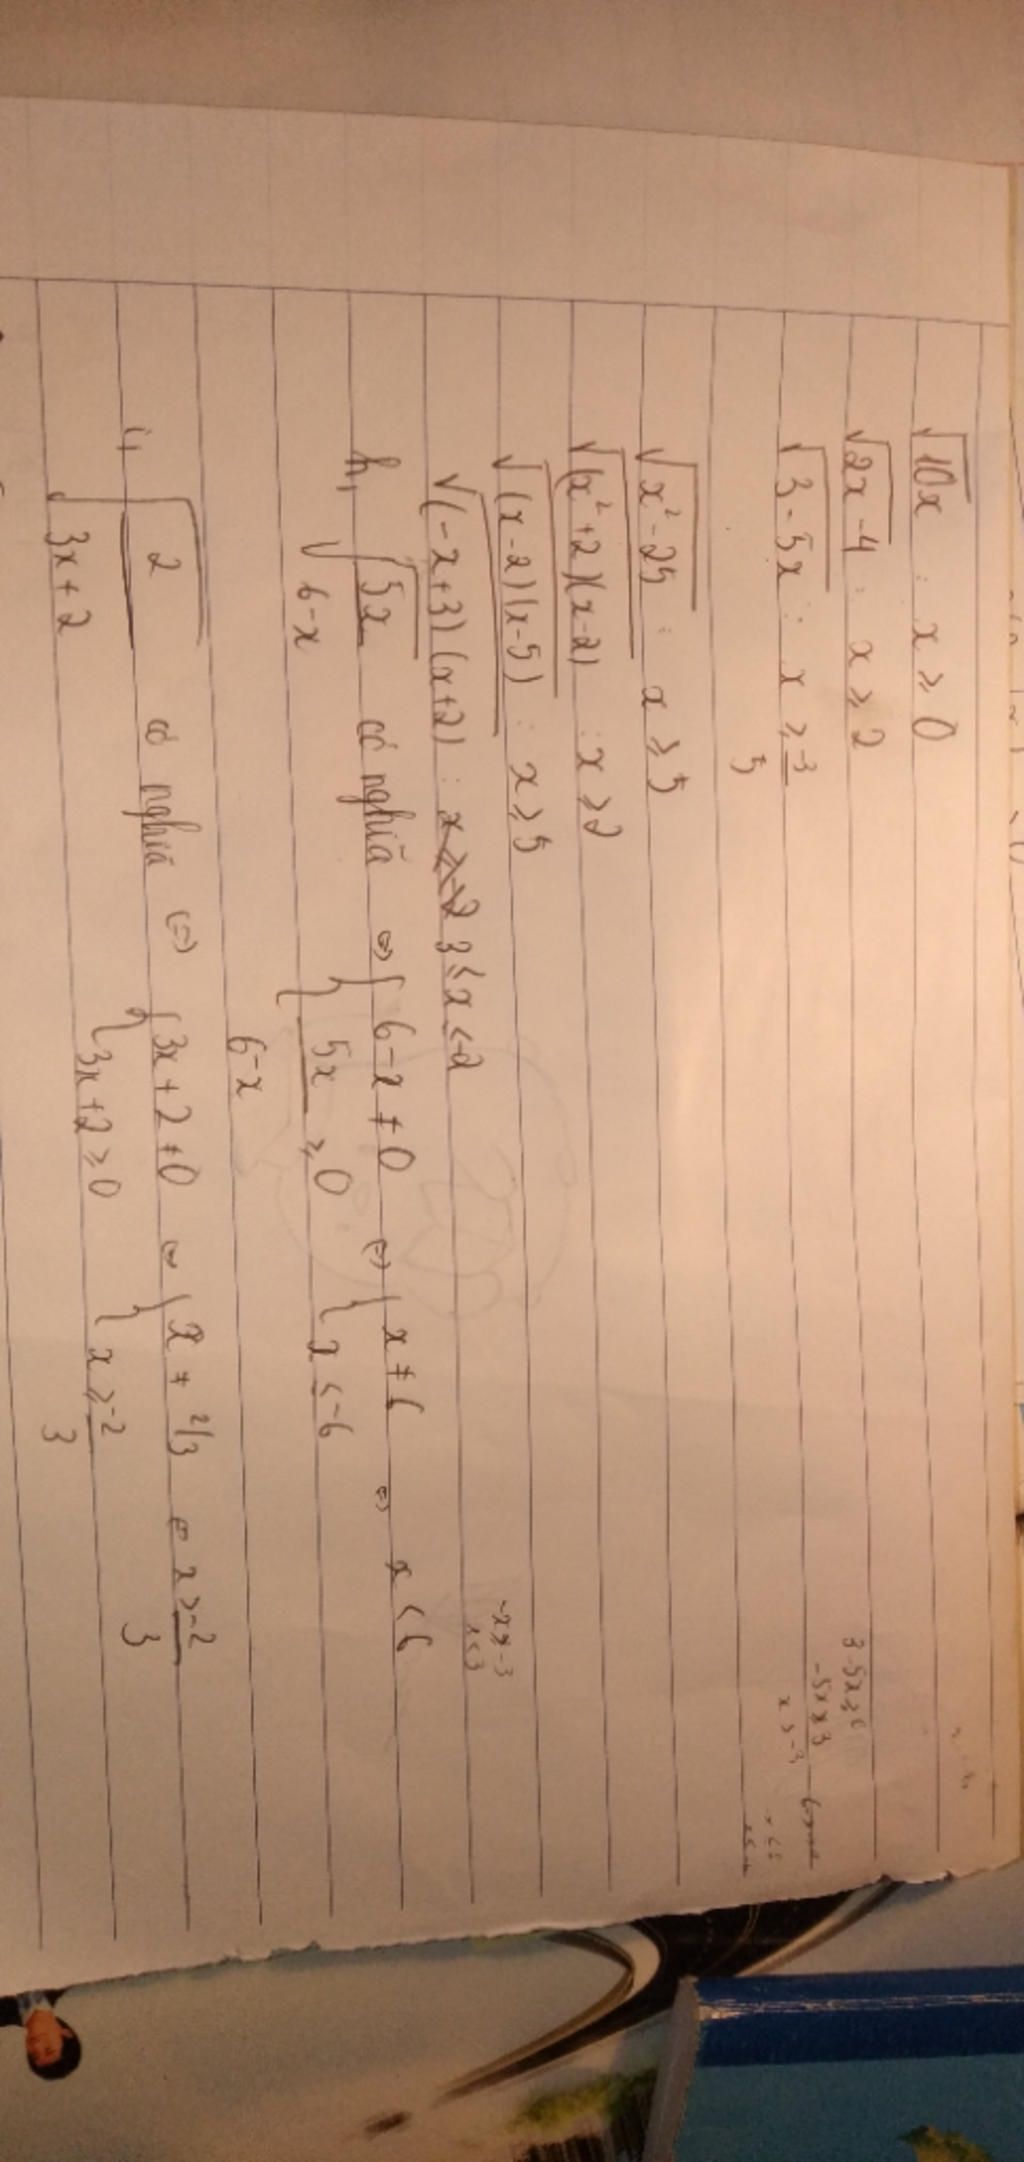 √10x : x ≥ 0
√2x-4 : x ≥ 2
√3-5x : x ≥ -3/5
√x²-25 : x ≥ 5
√(x²+2)(x-2) : x ≥ 2
√(x-2)(x-5) : x ≥ 5
√(-x+3)(x+2) : 3 ≤ x ≤ -2
h, √5x/6-x có nghĩa ⇔ { 6-x ≠ 0 ⇔ { x ≠ 6 ⇔ x < 6
{ 5x/6-x ≥ 0 { x ≤ -6
i, √2/3x+2 có nghĩa ⇔ { 3x+2 ≠ 0 ⇔ { x ≠ 2/3 ⇔ x > -2/3
{ 3x+2 ≥ 0 { x ≥ -2/3
3-5x ≥ 0
-5x ≥ 3
x > -3
-x ≥ -3
x < 3